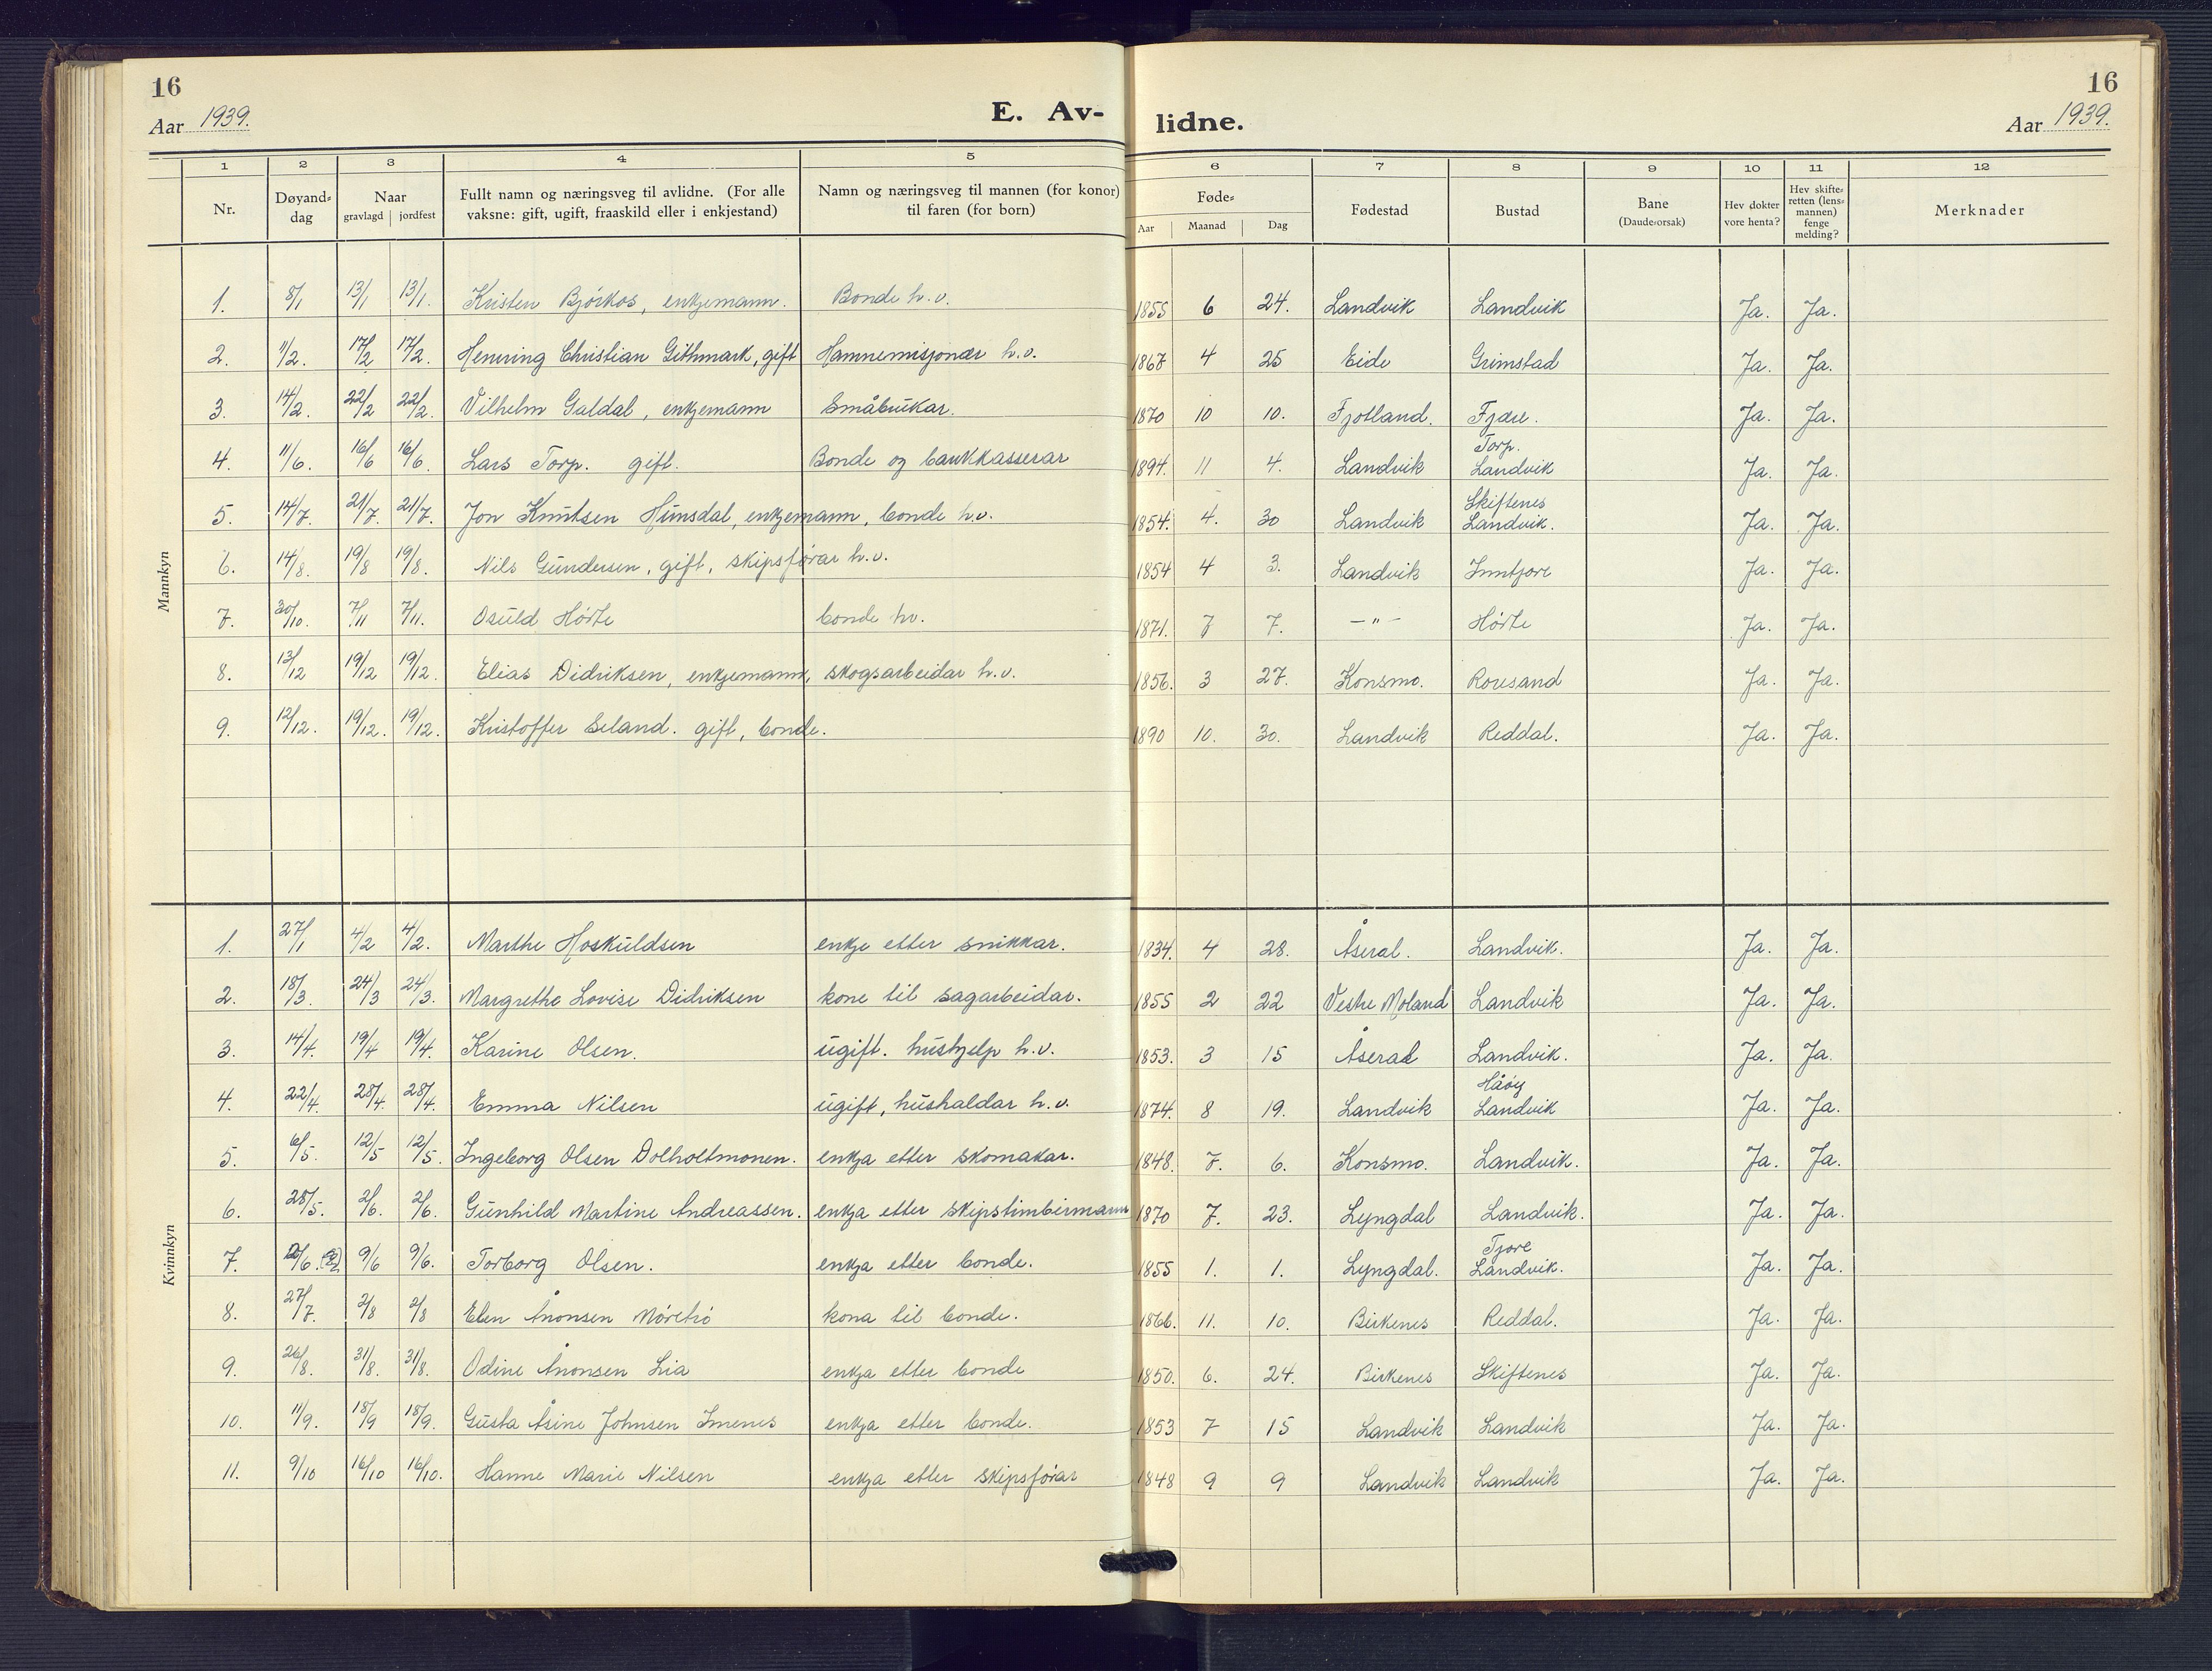 16
16
Aar 1939.
E. Av-
lidne.
Aar 1939.
1 2 3 4 5 6 7 8 9 10 11 12
Nr.
Døyand-
dag
Naar
gravlagd jordfest
Fullt namn og næringsveg til avlidne. (For alle
vaksne: gift, ugift, fraaskild eller i enkjestand)
Namn og næringsveg til mannen (for konor)
til faren (for born)
Føde-
Aar Maanad Dag
Fødestad
Bustad
Bane
(Daude-orsak)
Hev dokter
vore henta?
Hev skifte-
retten (lens-
mannen)
fenge
melding?
Merknader
Mannkyn
1. 8/1 13/1 13/1. Kristen Bjórkos, enkjemann. Bonde h.v. 1855 6 24. Landvik Landvik Ja. Ja.
2. 11/2. 17/2 17/2. Henning Christian Githmark, gift Hamnemisjonær h.v. 1867 4 25 Eide Grimstad Ja. Ja.
3. 14/2. 22/2 22/2. Vilhelm Galdal, enkjemann Småbrukar. 1870 10 10. Fjotland. Fjære. Ja. Ja.
Torp.
4. 11/6. 16/6 16/6. Lars Torp. gift. Bonde og bankkasserar 1894. 11 4. Landvik Landvik Ja. Ja.
Skiftenes
5. 14/7. 21/7. 21/7. Jon Knutsen Hunsdal, enkjemann, bonde h.v. 1854. 4. 30 Landvik Landvik. Ja. Ja.
6. 14/8. 19/8 19/8. Nils Gundersen, gift, skipsfórar h.v. 1854 4 3. Landvik Inntjore Ja. Ja.
7. 30/10. 7/11 7/11. Osuld Hórte bonde hv. 1871. 7 7. -"- Hórte Ja. Ja.
8. 13/12 19/12 19/12. Elias Didriksen, enkjemann, skogsarbeidar h.v. 1856. 3 27. Konsmo. Roresand Ja. Ja.
9. 12/12. 19/12. 19/12. Kristoffer Seland. gift, bonde. 1890 10. 30. Landvik Reddal. Ja. Ja.
Kvinnkyn
1. 27/1 4/2 4/2. Marthe Hoskuldsen enkje etter snikkar. 1834. 4 28. Åseral. Landvik. Ja. Ja.
2. 18/3. 24/3 24/3. Margrethe Lovise Didriksen kone til sagarbeidar. 1855 2 22 Vestre Moland Landvik Ja. Ja.
3. 14/4. 19/4 19/4. Karine Olsen. ugift. hushjelp h.v. 1853. 3 15 Åseral Landvik. Ja. Ja.
Håóy
4. 22/4. 28/4. 28/4. Emma Nilsen ugift, hushaldar h.v. 1874. 8 19. Landvik Landvik Ja. Ja.
5. 6/5. 12/5 12/5. Ingeborg Olsen Dolholtmonen. enkja etter skomakar. 1848. 7. 6. Konsmo. Landvik. Ja. Ja.
6. 28/5. 2/6. 2/6. Gunhild Martine Andreassen. enkja etter skipstimbermann 1870 7. 23. Lyngdal Landvik. Ja. Ja.
Tjore
7. 2/6. (2) 9/6 9/6. Torborg Olsen. enkja etter bonde. 1855 1. 1. Lyngdal. Landvik. Ja. Ja.
8. 27/7. 2/8 2/8 Elen Ånonsen Móretró kona til bonde. 1866. 11. 10. Birkenes Reddal. Ja. Ja.
9. 26/8. 31/8. 31/8. Odine Ånonsen Lia enkja etter bonde 1850. 6. 24. Birkenes Skiftenes Ja. Ja.
10. 11/9. 18/9 18/9. Gusta Åsine Johnsen Imenes enkja etter bonde. 1853 7 15 Landvik Landvik Ja. Ja.
11. 9/10 16/10 16/10. Hanne Marie Nilsen enkja etter skipsfórar 1848 9 9 Landvik Landvik Ja. Ja.